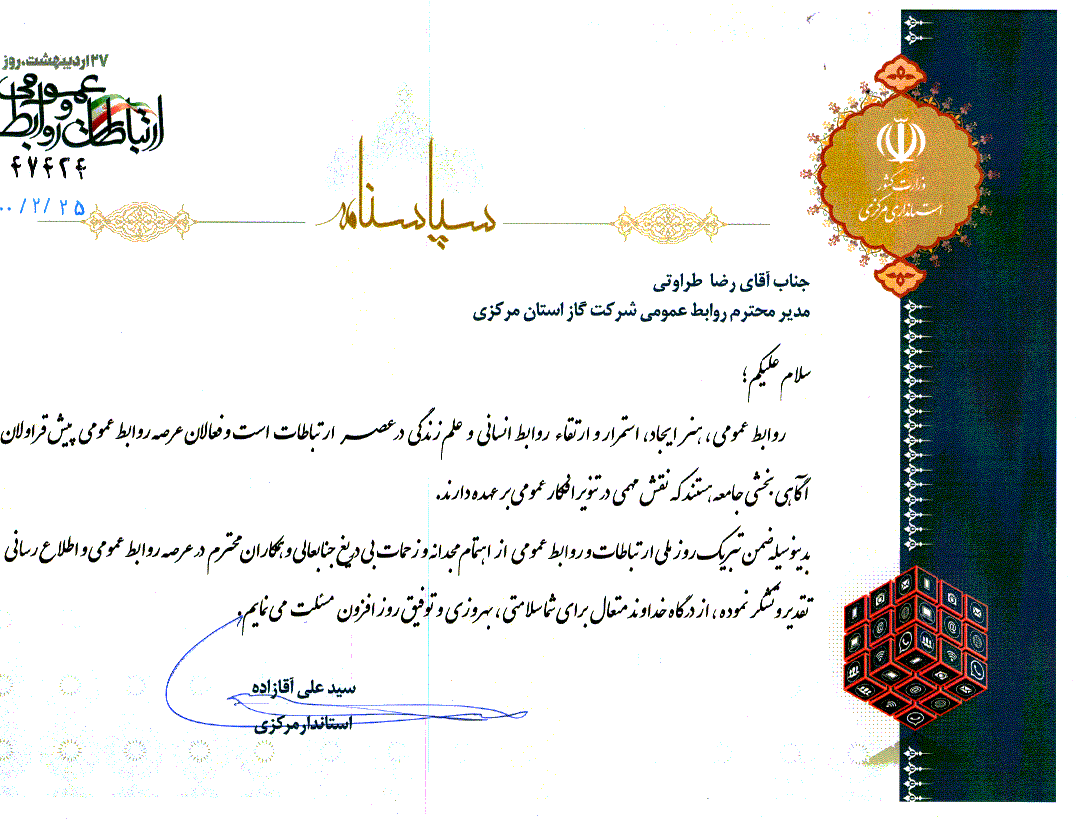 ۲۷ اردیبهشت، روز
ارتباطات و روابط عمومی
۴۷۴۲۴
۰۰/۲/۲۵
سپاسنامه
وزارت کشور
استانداری مرکزی
جناب آقای رضا طراوتی
مدیر محترم روابط عمومی شرکت گاز استان مرکزی
سلام علیکم؛
روابط عمومی، هنر ایجاد، استمرار و ارتقاء روابط انسانی و علم زندگی در عصر ارتباطات است و فعالان عرصه روابط عمومی پیش قراولان
آگاهی بخشی جامعه هستند که نقش مهمی در تنویر افکار عمومی بر عهده دارند.
بدینوسیله ضمن تبریک روز ملی ارتباطات و روابط عمومی از اهتمام مجدانه و زحمات بی دریغ جنابعالی و همکاران محترم در عرصه روابط عمومی و اطلاع رسانی
تقدیر و تشکر نموده، از درگاه خداوند متعال برای شما سلامتی، بهروزی و توفیق روز افزون مسئلت می نمایم.
سید علی آقازاده
استاندار مرکزی